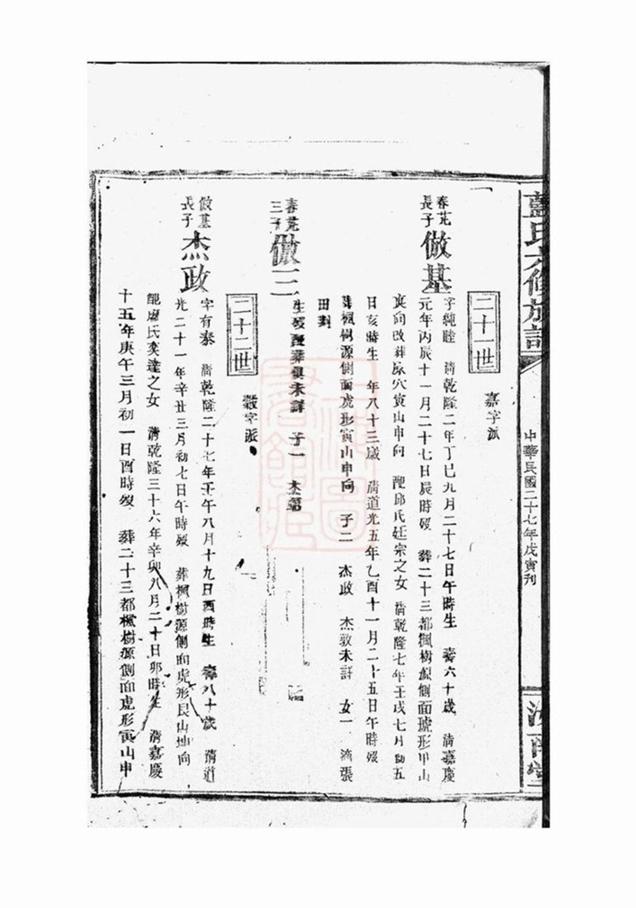 藍氏六修族譜
中華民國二十七年戊寅刊
汝南堂
二十一世
嘉字派
春芫
長子
倣基
字純睦 清乾隆二年丁巳九月二十七日午時生 壽六十歲 清嘉慶
元年丙辰十一月二十七日屍時歿 葬二十三都楓樹源側面虎形甲山
庚向改葬原穴寅山申向 配邱氏廷宗之女 清乾隆七年壬戌七月初五
日亥時生 年八十三歲 清道光五年乙酉十一月二十五日午時歿
葬楓樹源側面虎形寅山申向 子二 杰政 杰敦未詳 女一 適張
田對
春芫
三子
倣三
生歿配葬俱未詳 子一 杰
二十二世
徽字派
倣基
長子
杰政
字有泰 清乾隆二十七年壬午八月十九日酉時生 壽八十歲 清道
光二十一年辛丑三月初七日午時歿 葬楓樹源側面虎形艮山坤向
配廖氏奕達之女 清乾隆三十六年辛卯八月二十日卯時生 清嘉慶
十五年庚午三月初一日酉時歿 葬二十三都楓樹源側面虎形寅山申